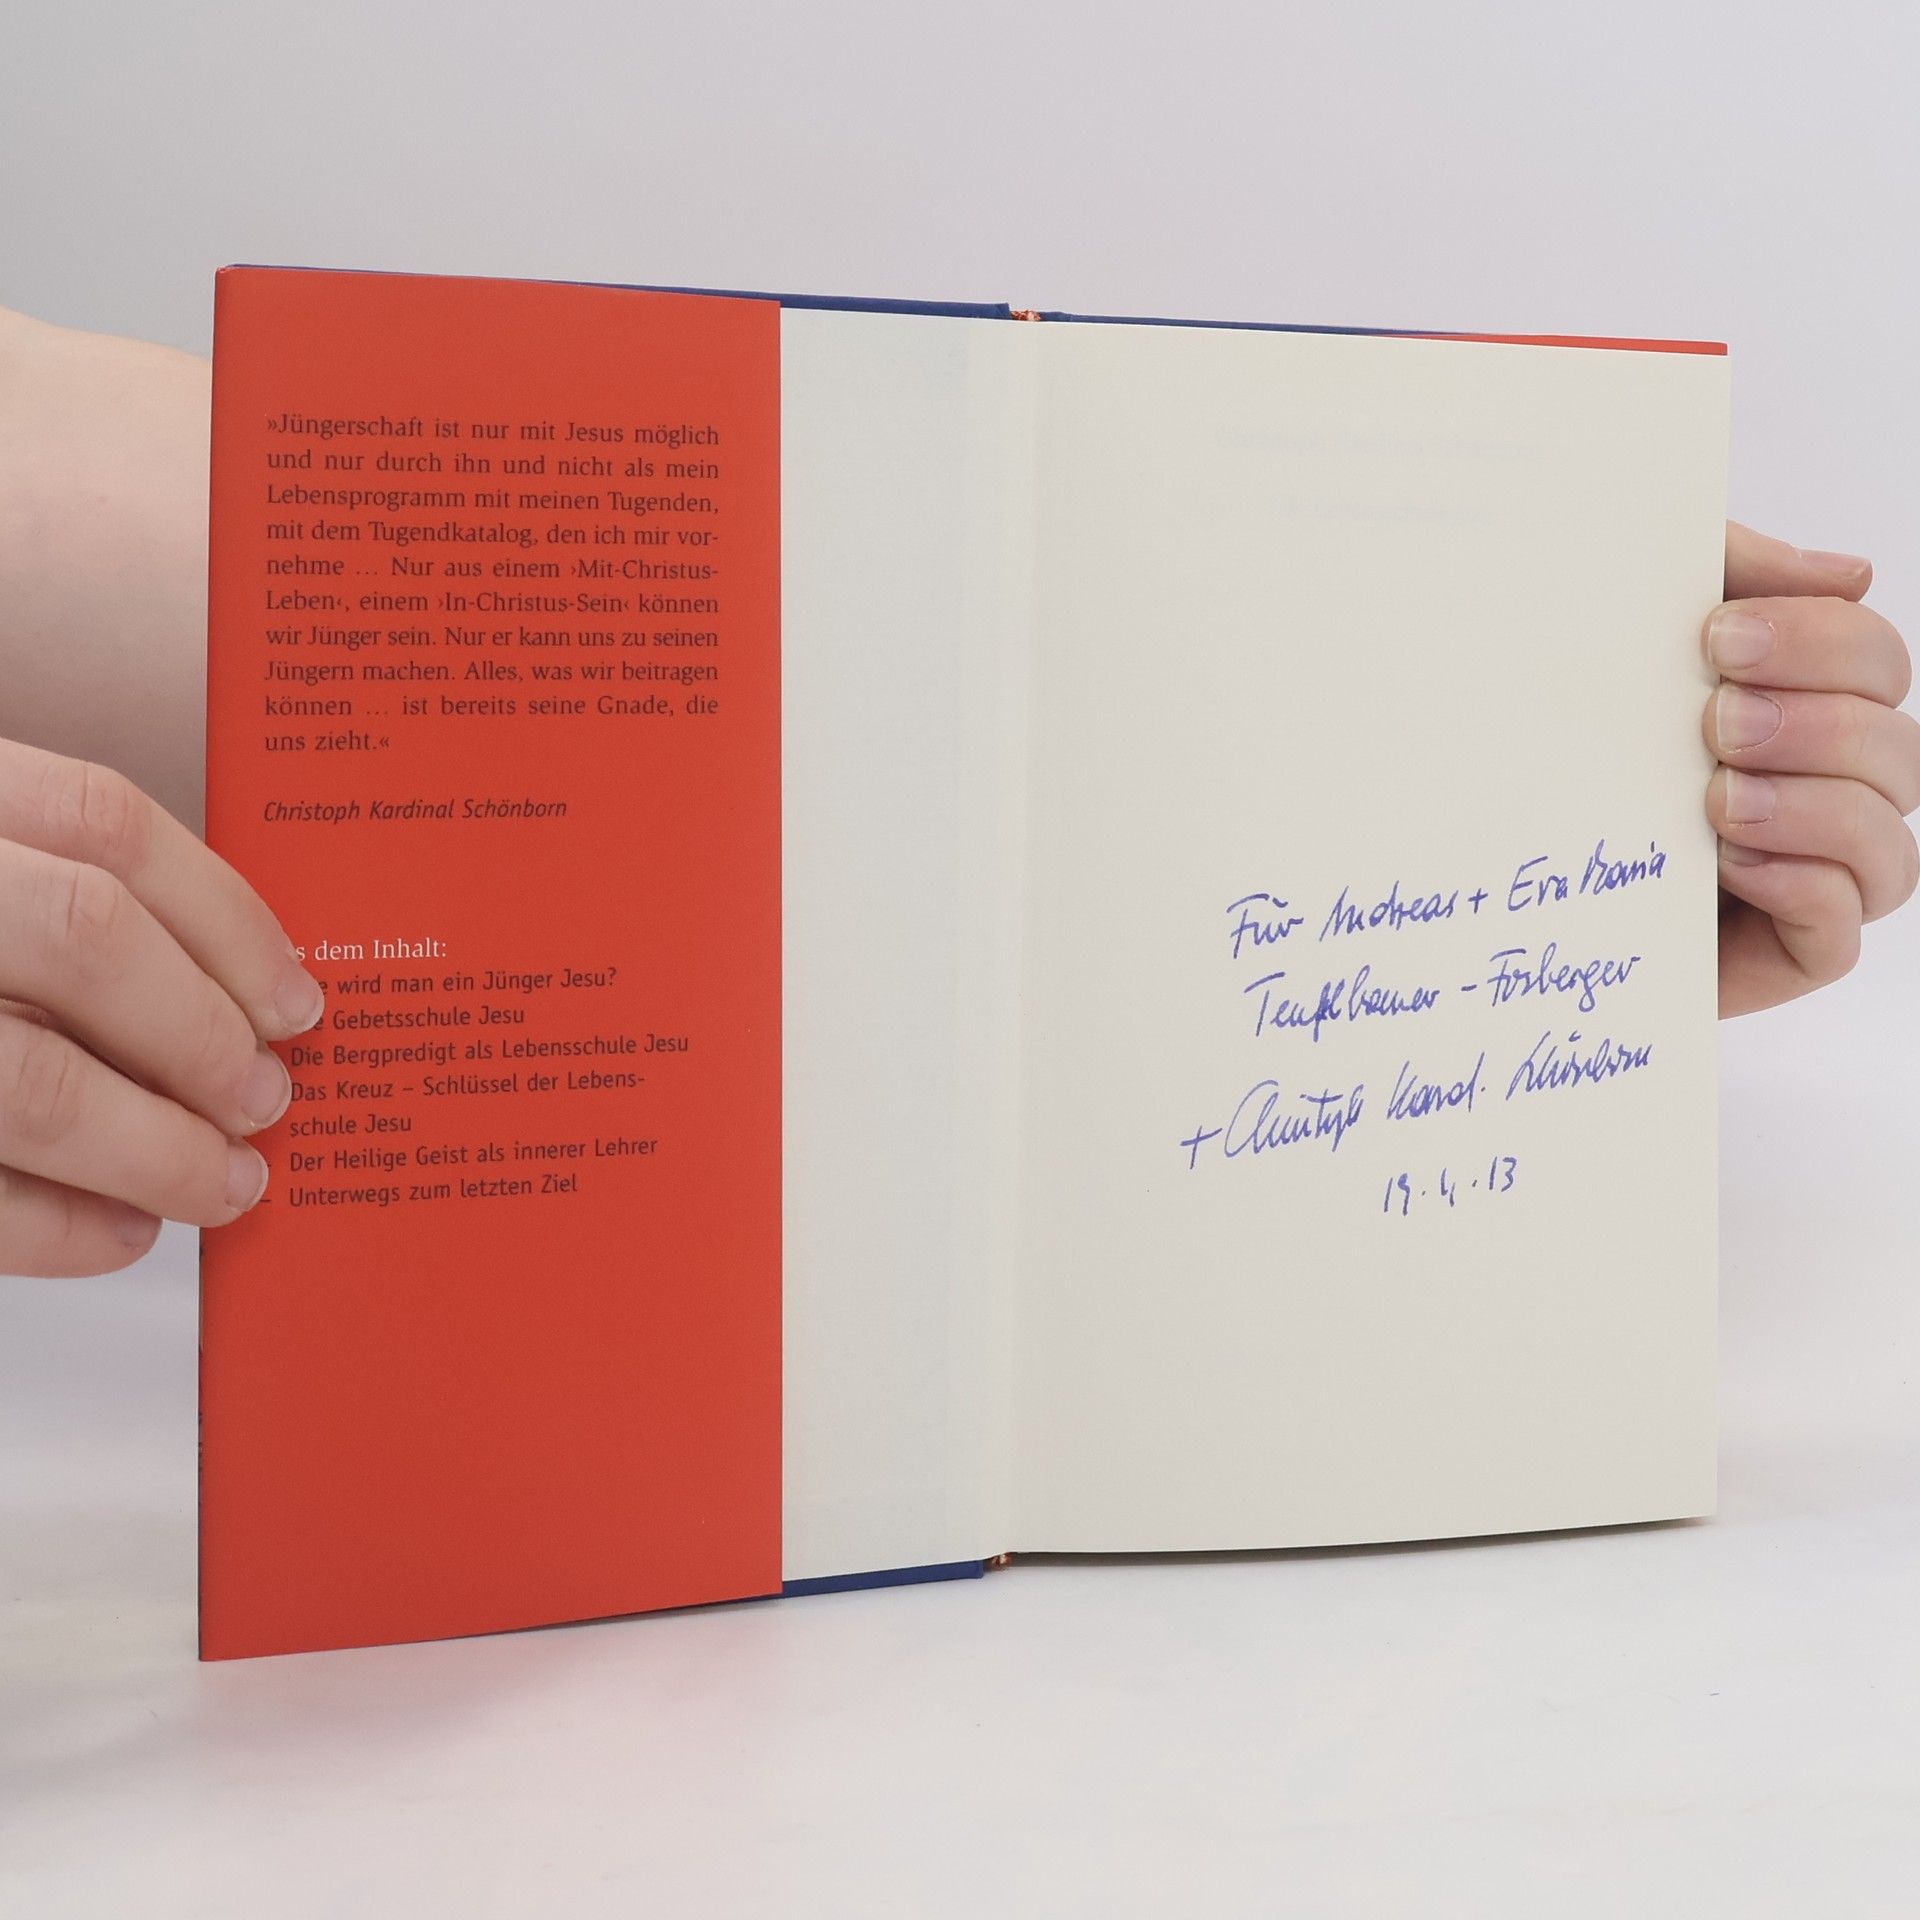 »Jüngerschaft ist nur mit Jesus möglich
und nur durch ihn und nicht als mein
Lebensprogramm mit meinen Tugenden,
mit dem Tugendkatalog, den ich mir vor-
nehme … Nur aus einem ›Mit-Christus-
Leben‹, einem ›In-Christus-Sein‹ können
wir Jünger sein. Nur er kann uns zu seinen
Jüngern machen. Alles, was wir beitragen
können … ist bereits seine Gnade, die
uns zieht.«
Christoph Kardinal Schönborn
s dem Inhalt:
e wird man ein Jünger Jesu?
e Gebetsschule Jesu
Die Bergpredigt als Lebensschule Jesu
Das Kreuz – Schlüssel der Lebens-
schule Jesu
– Der Heilige Geist als innerer Lehrer
– Unterwegs zum letzten Ziel
Für Andreas + Eva Maria
+ Christoph Kard. Schönborn
19.4.13